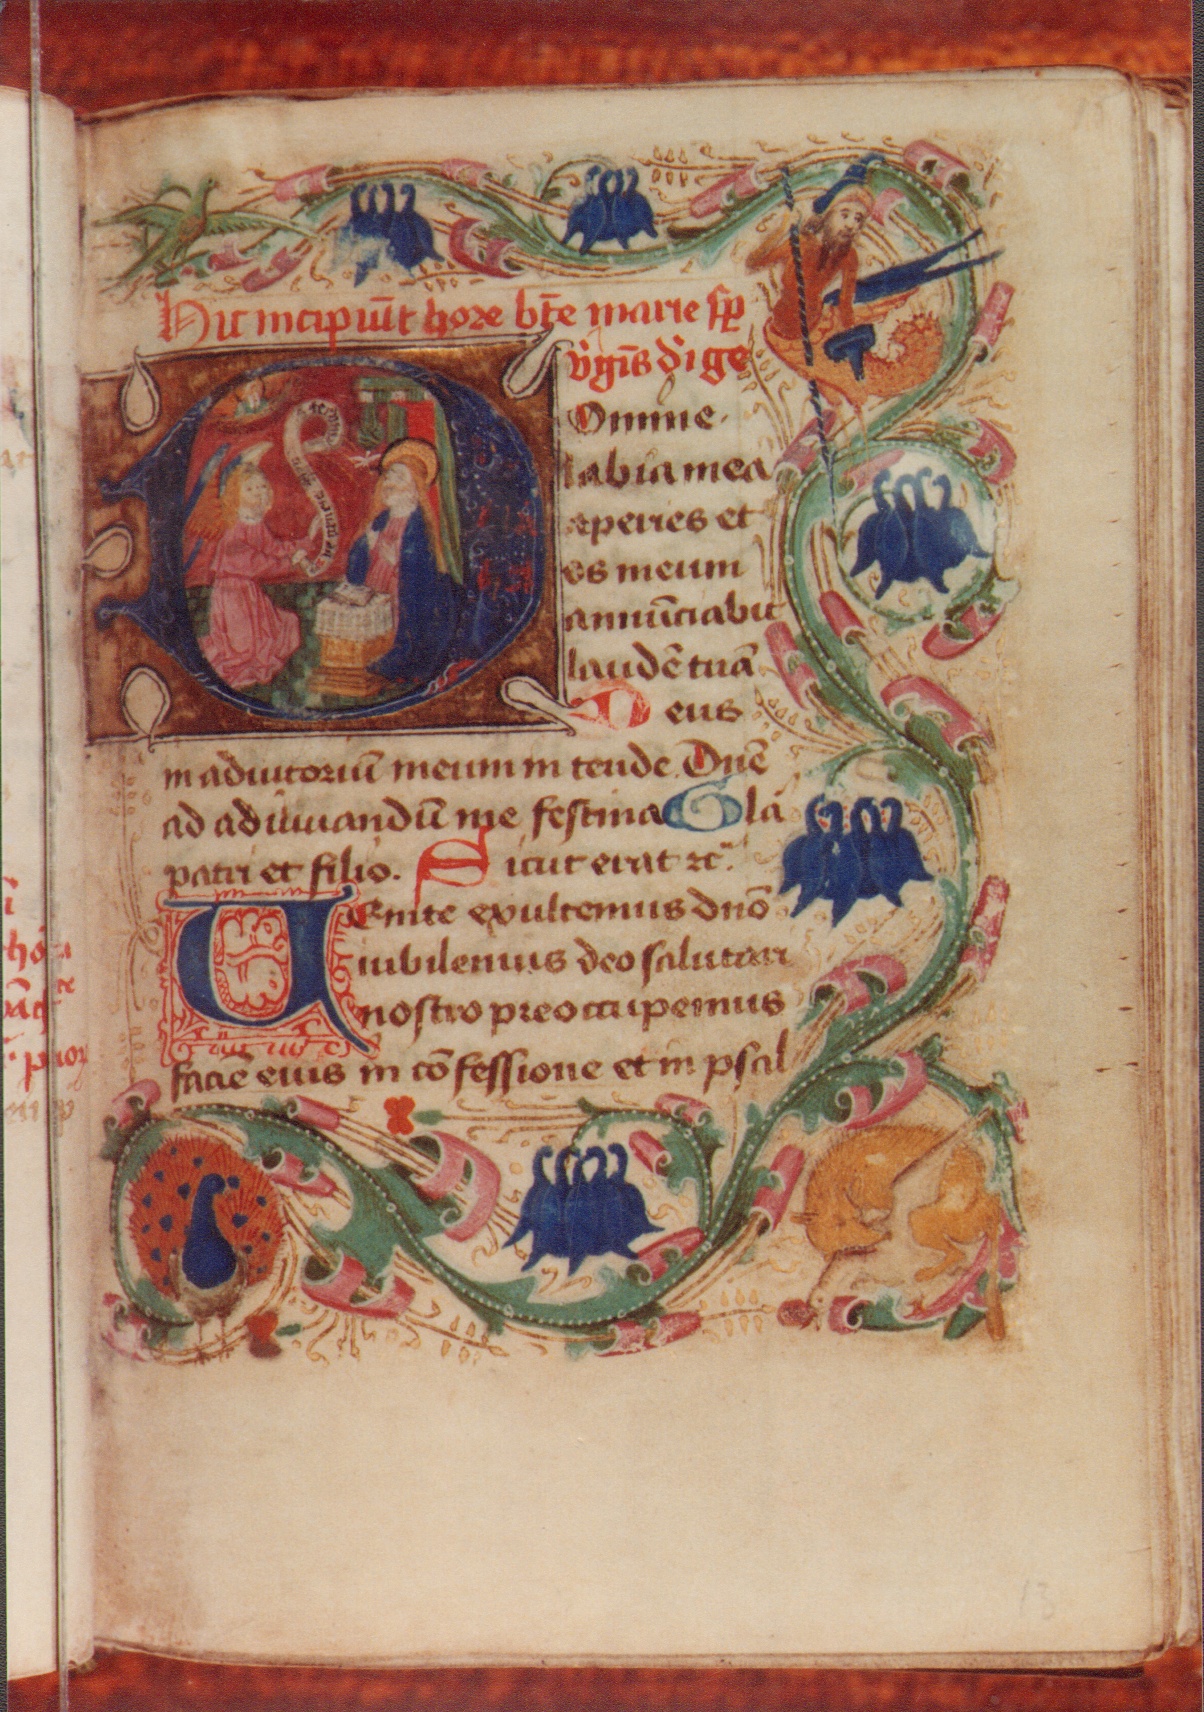 Hic incipiūt hore bt̄e marie sp̄
v̄gīs d'i ge
Domine
labia mea
aperies et
os meum
annūciabit
laudē tuā
Deus
in adiutoriū meum in tende Dn̄e
ad adiuuandū me festina Gla
patri et filio. Sicut erat ⁊c̄.
Uenite exultemus dn̄o
iubilemus deo salutari
nostro preoccupemus
facie eius in cōfessione et in psal
13